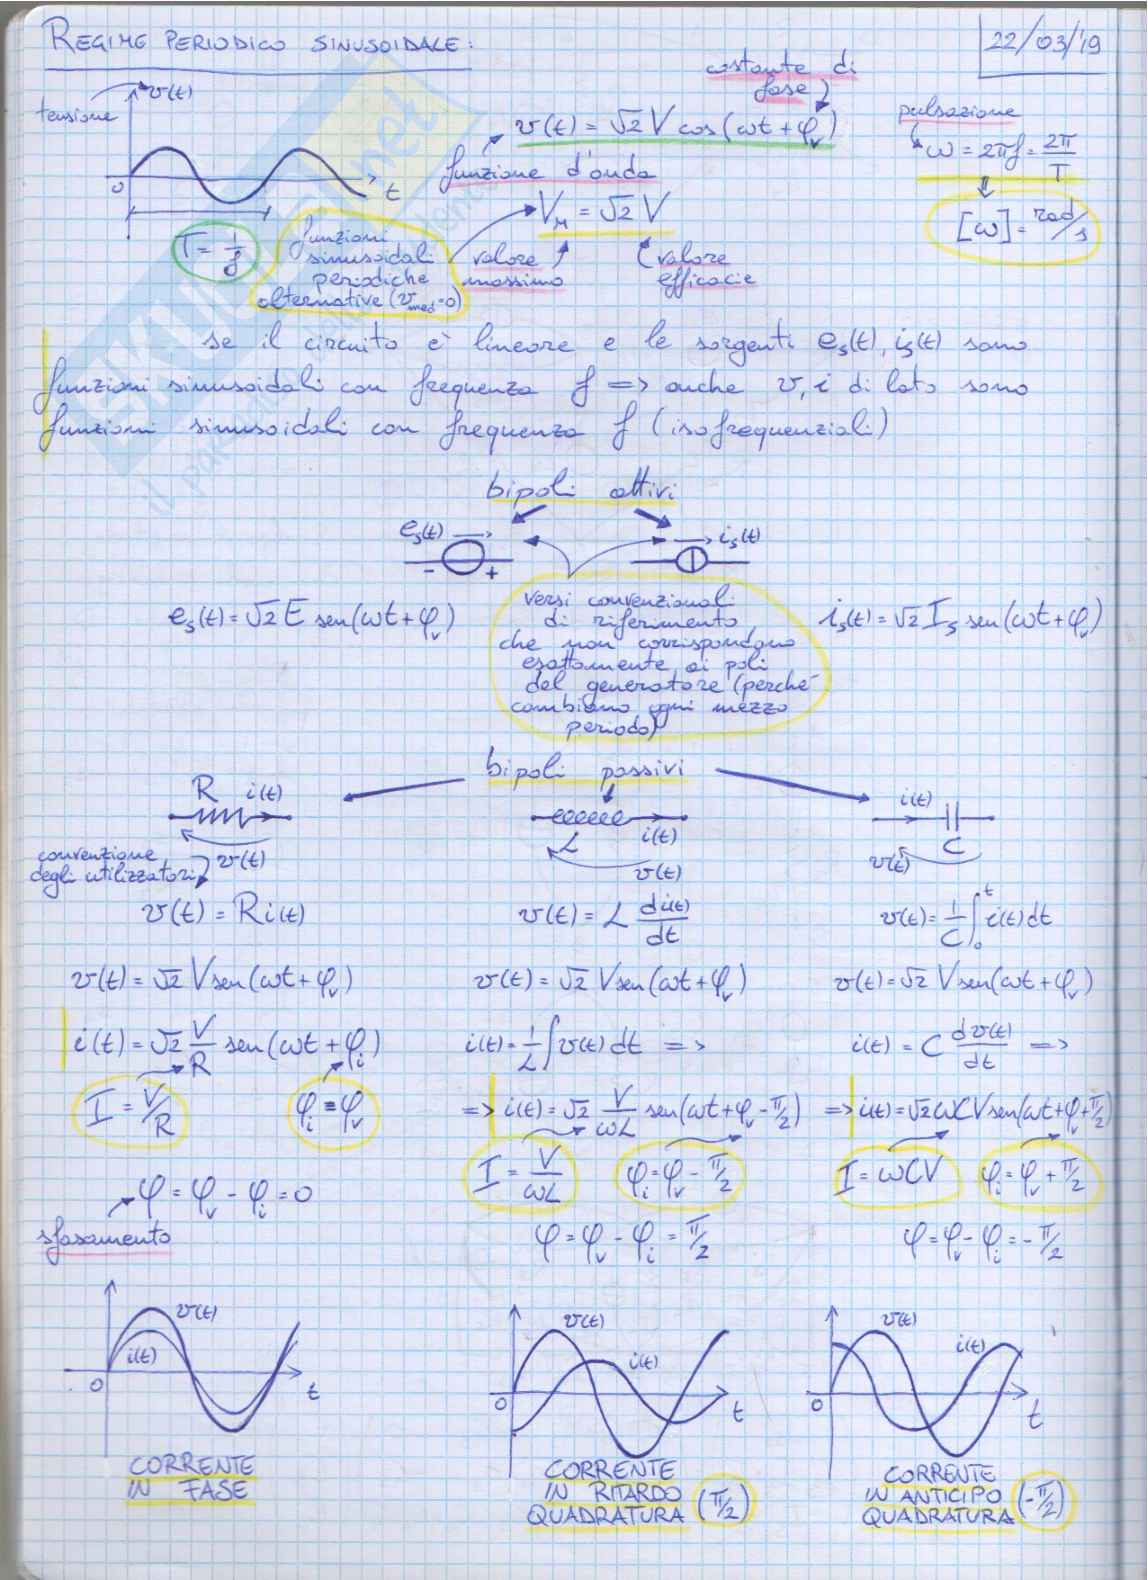 REGIME PERIODICO SINUSOIDALE:
22/03/'19
tensione
v(t)
0
t
T = 1/f
funzioni
sinusoidali
periodiche
alternative (v_med=0)
costante di
fase
v(t) = √2 V cos(ωt + φ_v)
funzione d'onda
V_M = √2 V
valore
massimo
valore
efficacie
pulsazione
ω = 2πf = 2π/T
[ω] = rad/s
se il circuito è lineare e le sorgenti e_s(t), i_s(t) sono
funzioni sinusoidali con frequenza f => anche v, i di lato sono
funzioni sinusoidali con frequenza f (isofrequenziali)
bipoli attivi
e_s(t)
- +
i_s(t)
e_s(t) = √2 E sen(ωt + φ_v)
versi convenzionali
di riferimento
che non corrispondono
esattamente ai poli
del generatore (perché
cambiano ogni mezzo
periodo)
i_s(t) = √2 I_s sen(ωt + φ_v)
bipoli passivi
R i(t)
v(t)
convenzione
degli utilizzatori
v(t) = R i(t)
v(t) = √2 V sen(ωt + φ_v)
i(t) = √2 V/R sen(ωt + φ_i)
I = V/R
φ_i ≡ φ_v
φ = φ_v - φ_i = 0
sfasamento
L i(t)
v(t)
v(t) = L di(t)/dt
v(t) = √2 V sen(ωt + φ_v)
i(t) = 1/L ∫ v(t) dt =>
=> i(t) = √2 V/ωL sen(ωt + φ_v - π/2)
I = V/ωL
φ_i = φ_v - π/2
φ = φ_v - φ_i = π/2
i(t)
v(t) C
v(t) = 1/C ∫₀ᵗ i(t) dt
v(t) = √2 V sen(ωt + φ_v)
i(t) = C dv(t)/dt =>
=> i(t) = √2 ωCV sen(ωt + φ_v + π/2)
I = ωCV
φ_i = φ_v + π/2
φ = φ_v - φ_i = - π/2
v(t)
i(t)
0
t
CORRENTE
IN FASE
v(t)
i(t)
0
t
CORRENTE
IN RITARDO
QUADRATURA (π/2)
v(t)
i(t)
0
t
CORRENTE
IN ANTICIPO
QUADRATURA (-π/2)